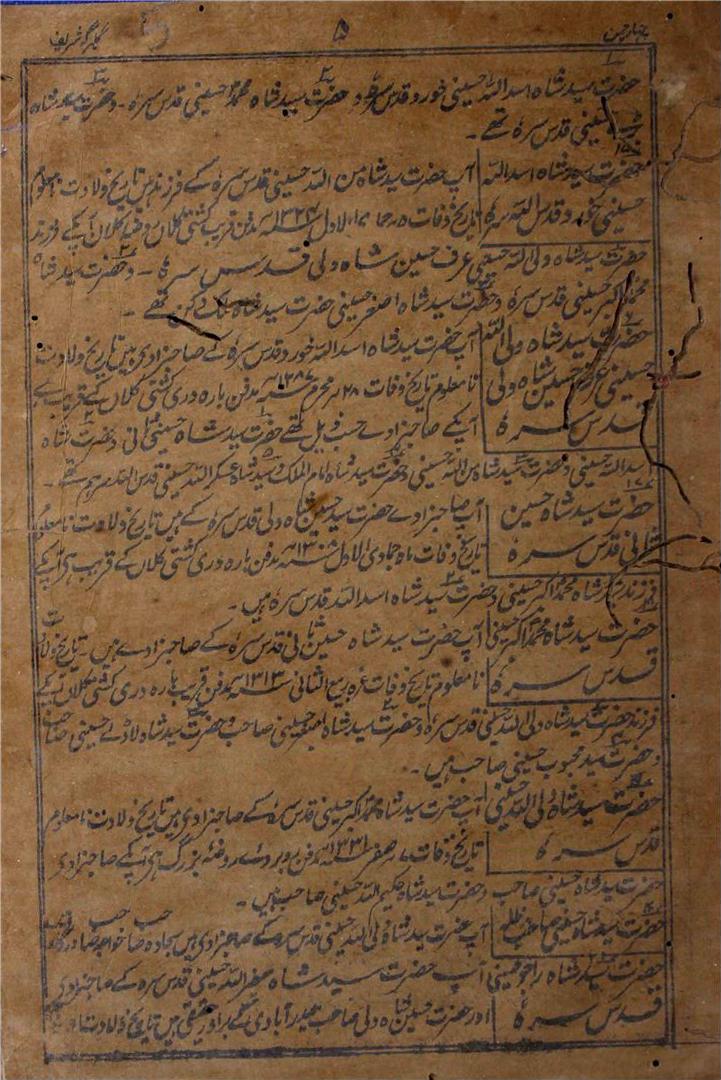 بہار چمن ۵ گلبرگہ شریف
حضرت سید شاہ اسد اللہ حسینی خورد قدس سرہ و حضرت سید شاہ محمد حسینی قدس سرہ ۔ و حضرت سید شاہ
حسینی قدس سرہ تھے ۔
حضرت سید شاہ اسد اللہ آپ حضرت سید شاہ من اللہ حسینی قدس سرہ کے فرزند ہیں تاریخ ولادت نامعلوم
حسینی خورد قدس اللہ سرہ تاریخ وفات ۵ جمادی الاول مدفن قریب کشتی کلاں آپ کے فرزند
حضرت سید شاہ ولی اللہ حسینی عرف حسین شاہ ولی قدس سرہ ۔ و حضرت سید شاہ
محمد اکبر حسینی قدس سرہ و حضرت سید شاہ اصغر حسینی حضرت سید شاہ تھے ۔
حضرت سید شاہ ولی اللہ آپ حضرت سید شاہ اسد اللہ خورد قدس سرہ کے صاحبزادے ہیں تاریخ ولادت
حسینی عرف حسین شاہ ولی نامعلوم تاریخ وفات ۲۸ محرم ۱۲۸۷ مدفن بارہ دری کشتی کلاں کے قریب ہے
قدس سرہ آپکے صاحبزادے حسب ذیل تھے حضرت سید شاہ حسینی ثانی و حضرت شاہ
اسد اللہ حسینی و حضرت سید شاہ من اللہ حسینی و حضرت سید شاہ امام الملک و سید شاہ عسکر اللہ حسینی قدس اللہ سرہم تھے ۔
حضرت سید شاہ حسین آپ صاحبزادے حضرت سید حسین شاہ ولی قدس سرہ کے ہیں تاریخ ولادت نامعلوم
ثانی قدس سرہ تاریخ وفات ماہ جمادی الاول ۱۳۰۸ مدفن بارہ دری کشتی کلاں کے قریب ہے آپ کے
فرزند سید شاہ محمد اکبر حسینی و حضرت سید شاہ اسد اللہ قدس سرہ ہیں ۔
حضرت سید شاہ محمد اکبر حسینی آپ حضرت سید شاہ حسین ثانی قدس سرہ کے صاحبزادے ہیں ۔ تاریخ ولادت
قدس سرہ نامعلوم تاریخ وفات غرہ ربیع الثانی ۱۳۱۳ مدفن قریب بارہ دری کشتی کلاں آپ کے
فرزند حضرت سید شاہ ولی اللہ حسینی قدس سرہ و حضرت سید شاہ اصغر حسینی صاحب و حضرت سید شاہ لاڈلے حسینی صاحب
و حضرت سید محبوب حسینی صاحب ہیں ۔
حضرت سید شاہ ولی اللہ حسینی آپ حضرت سید شاہ محمد اکبر حسینی قدس سرہ کے صاحبزادے ہیں تاریخ ولادت نامعلوم
قدس سرہ تاریخ وفات ۷ صفر ۱۳۳۱ مدفن روبروے روضہ بزرگ ہے آپ کے صاحبزادے
حضرت سید شاہ حسینی صاحب و حضرت سید شاہ حکیم اللہ حسینی صاحب ہیں ۔
حضرت سید شاہ حسینی صاحب مدظلہ آپ حضرت سید شاہ ولی اللہ حسینی قدس سرہ کے صاحبزادے ہیں سجادہ صاحب
حضرت سید شاہ راجو حسینی آپ حضرت سید شاہ صفر اللہ حسینی قدس سرہ کے صاحبزادے
قدس سرہ اور حضرت حسین شاہ ولی صاحب حیدرآبادی کے برادر حقیقی ہیں تاریخ ولادت